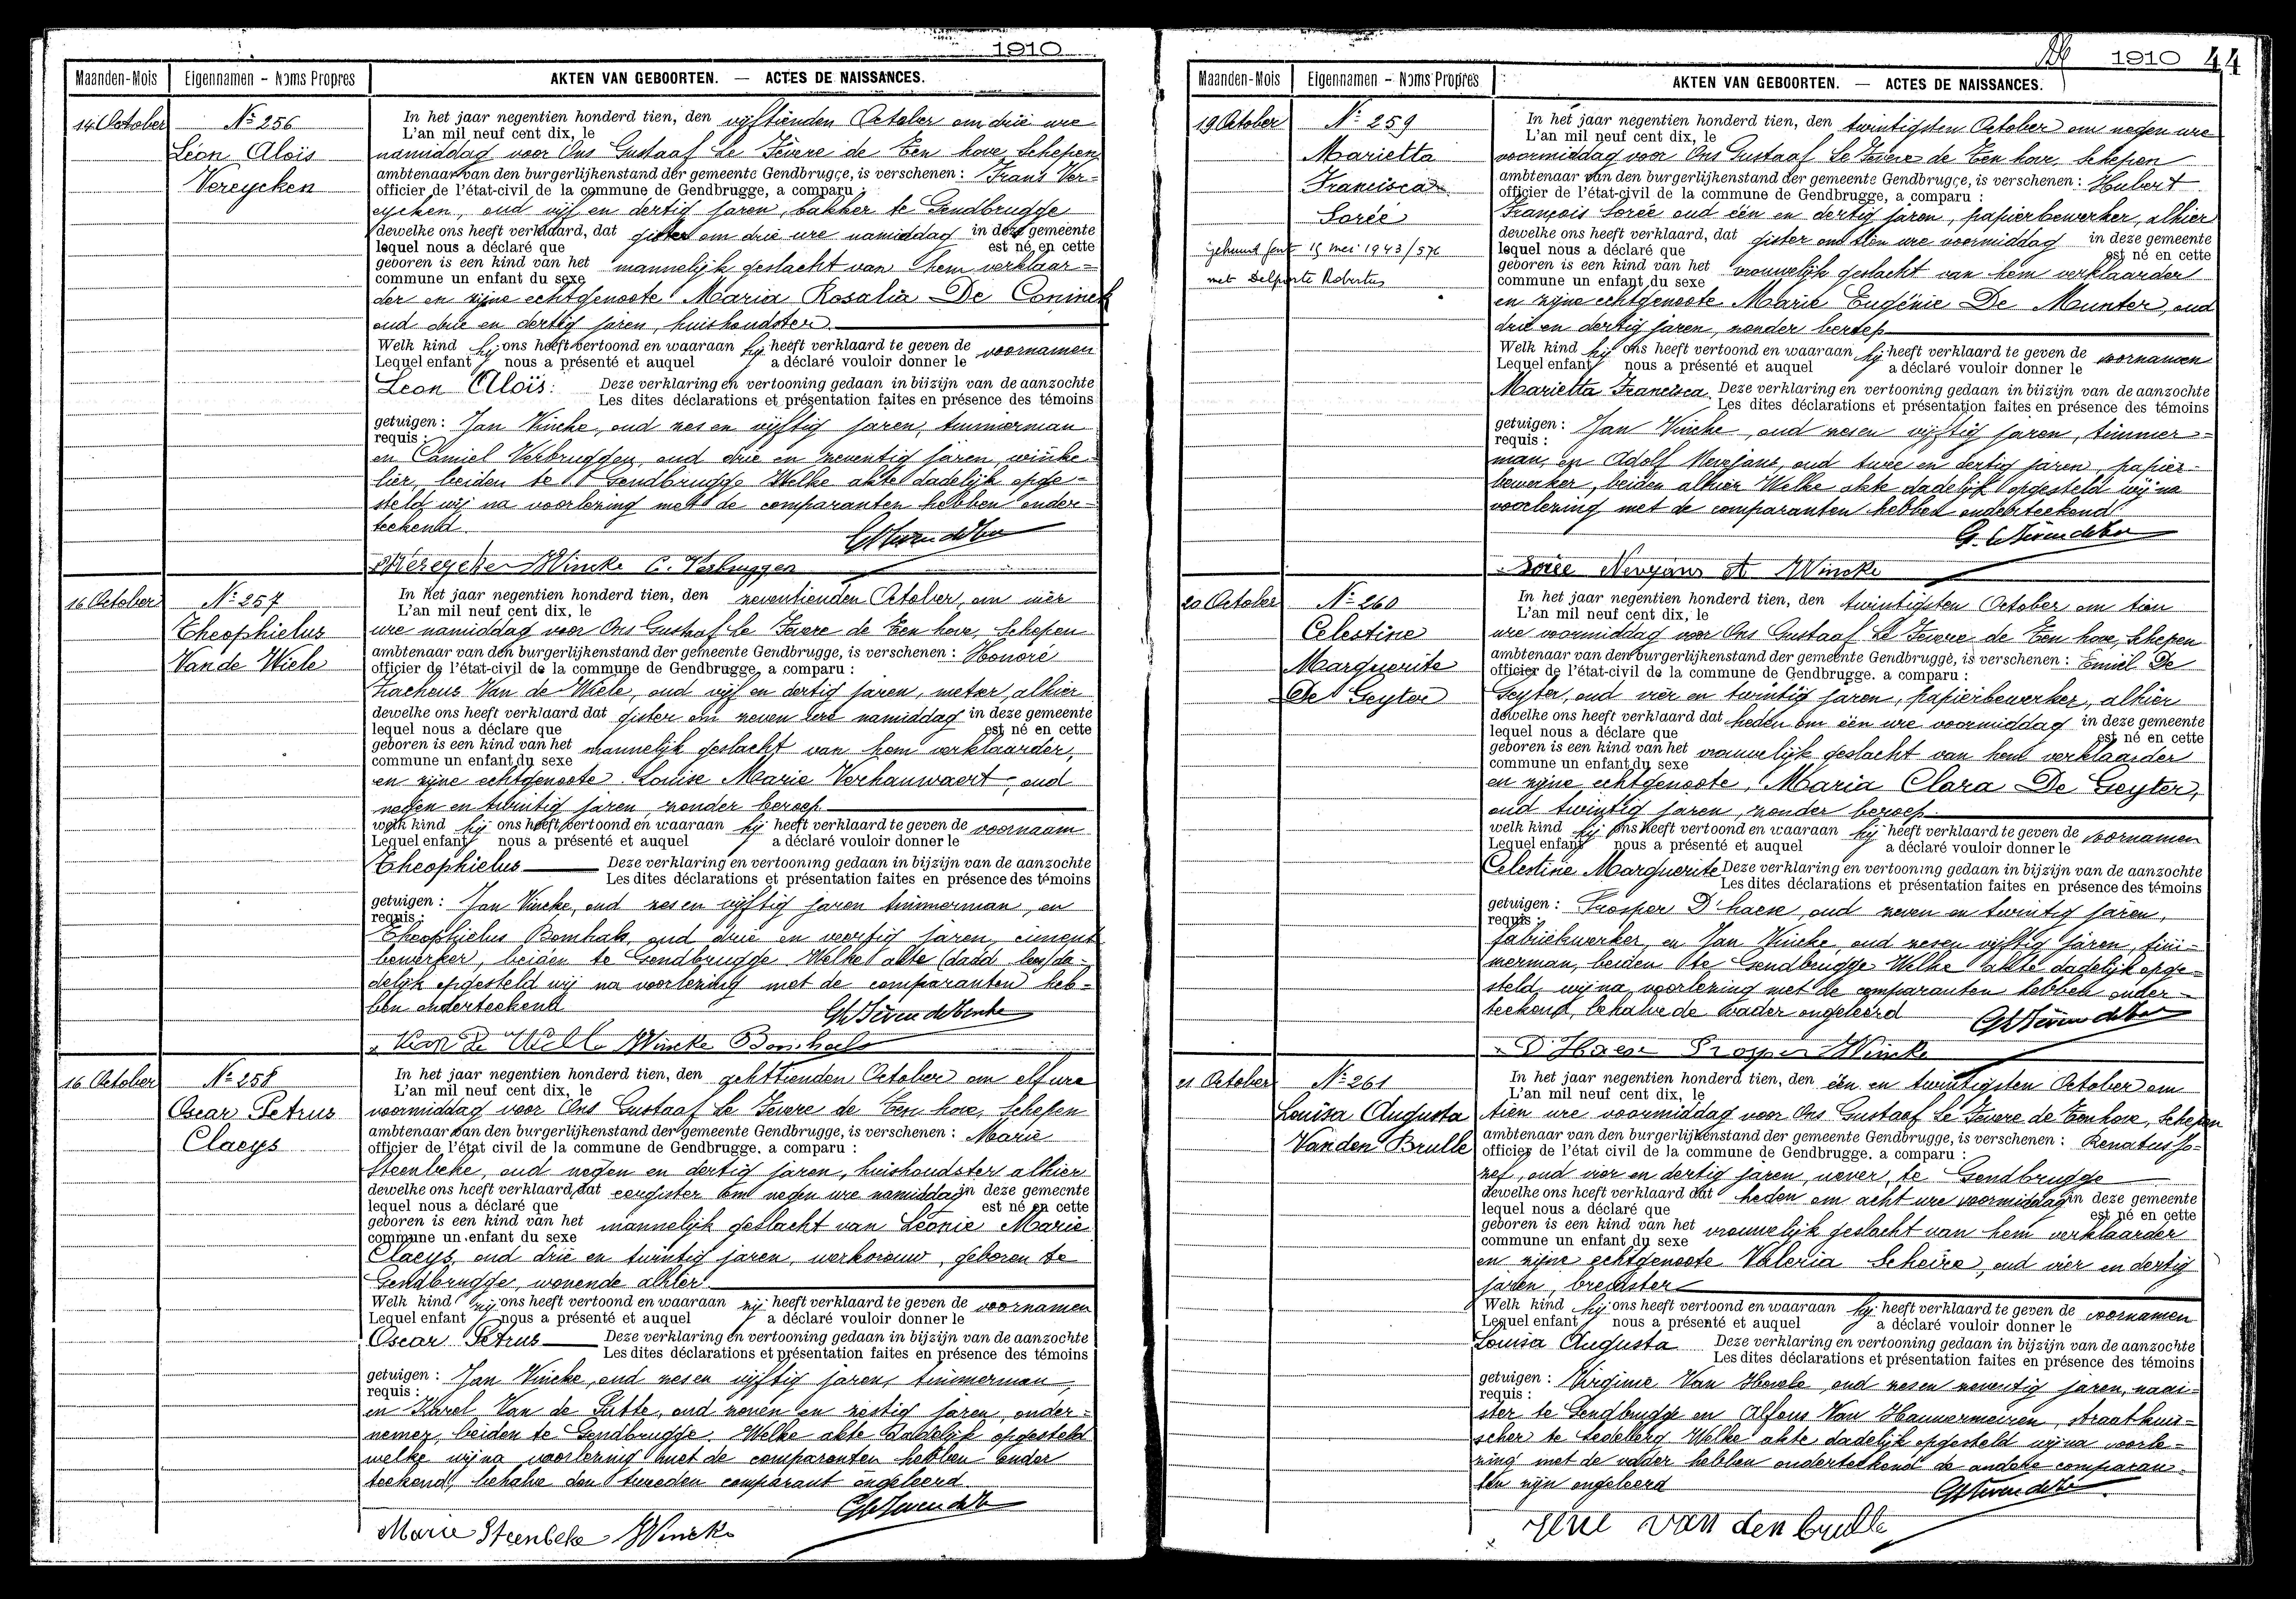 1910
Maanden-Mois Eigennamen - Noms Propres AKTEN VAN GEBOORTEN. — ACTES DE NAISSANCES.
14 October
Nº 256
Léon Aloïs
Vereycken
In het jaar negentien honderd tien, den vijftienden October om drie ure
L'an mil neuf cent dix, le
namiddag voor Ons Gustaaf Le Fevere de Ten hove, Schepen
ambtenaar van den burgerlijkenstand der gemeente Gendbrugge, is verschenen : Frans Ver-
officier de l'état-civil de la commune de Gendbrugge, a comparu :
eycken, oud vijf en dertig jaren, bakker te Gendbrugge
dewelke ons heeft verklaard, dat gister om drie ure namiddag in deze gemeente
lequel nous a déclaré que est né en cette
geboren is een kind van het mannelijk geslacht van hem verklaar=
commune un enfant du sexe
der en zijne echtgenoote Maria Rosalia De Coninck
oud drie en dertig jaren, huishoudster
Welk kind hij ons heeft vertoond en waaraan hij heeft verklaard te geven de voornamen
Lequel enfant nous a présenté et auquel a déclaré vouloir donner le
Leon Aloïs: Deze verklaring en vertooning gedaan in bijzijn van de aanzochte
Les dites déclarations et présentation faites en présence des témoins
getuigen : Jan Vincke, oud zes en vijftig jaren, timmerman
requis :
en Camiel Verbruggen, oud drie en zeventig jaren, winke-
lier, beiden te Gendbrugge Welke akte dadelijk opge-
steld wij na voorlezing met de comparanten hebben onder-
teekend.
Vereycken JVincke C. Verbruggen
16 October
Nº 257
Theophielus
Van de Wiele
In het jaar negentien honderd tien, den zeventienden October, om vier
L'an mil neuf cent dix, le
ure namiddag voor Ons Gustaaf Le Fevere de Ten hove, Schepen
ambtenaar van den burgerlijkenstand der gemeente Gendbrugge, is verschenen : Honoré
officier de l'état-civil de la commune de Gendbrugge, a comparu :
Zacheus Van de Wiele, oud vijf en dertig jaren, metser, alhier
dewelke ons heeft verklaard dat gister om zeven ure namiddag in deze gemeente
lequel nous a déclare que est né en cette
geboren is een kind van het mannelijk geslacht van hem verklaarder,
commune un enfant du sexe
en zijne echtgenoote Louise Marie Verhauwaert, oud
negen en twintig jaren, zonder beroep
welk kind hij ons heeft vertoond en waaraan hij heeft verklaard te geven de voornaam
Lequel enfant nous a présenté et auquel a déclaré vouloir donner le
Theophielus Deze verklaring en vertooning gedaan in bijzijn van de aanzochte
Les dites déclarations et présentation faites en présence des témoins
getuigen : Jan Vincke, oud zes en vijftig jaren timmerman, en
requis :
Theophielus Bomhals, oud drie en veertig jaren, ciment
bewerker, beiden te Gendbrugge Welke akte (dadd lees) da-
delijk opgesteld wij na voorlezing met de comparanten heb-
ben onderteekend
Van De Wielle JVincke Bomhals
16 October
Nº 258
Oscar Petrus
Claeys
In het jaar negentien honderd tien, den achttienden October om elf ure
L'an mil neuf cent dix, le
voormiddag voor Ons Gustaaf Le Fevere de Ten hove, Schepen
ambtenaar van den burgerlijkenstand der gemeente Gendbrugge, is verschenen : Marie
officier de l'état civil de la commune de Gendbrugge. a comparu :
Steenbeke, oud negen en dertig jaren, huishoudster alhier
dewelke ons heeft verklaard, dat eergister om negen ure namiddag in deze gemeente
lequel nous a déclaré que est né en cette
geboren is een kind van het mannelijk geslacht van Léonie Marie
commune un enfant du sexe
Claeys, oud drie en twintig jaren, werkvrouw, geboren te
Gendbrugge, wonende alhier
Welk kind zij ons heeft vertoond en waaraan zij heeft verklaard te geven de voornamen
Lequel enfant nous a présenté et auquel a déclaré vouloir donner le
Oscar Petrus Deze verklaring en vertooning gedaan in bijzijn van de aanzochte
Les dites déclarations et présentation faites en présence des témoins
getuigen : Jan Vincke, oud zes en vijftig jaren, timmerman,
requis :
en Karel Van de Putte, oud zeven en zestig jaren, onder-
nemer, beiden te Gendbrugge. Welke akte dadelijk opgesteld
welke wij na voorlezing met de comparanten hebben onder
teekend, behalve den tweeden comparant ongeleerd.
Marie Steenbeke JVincke
1910 44
Maanden-Mois Eigennamen - Noms Propres AKTEN VAN GEBOORTEN. — ACTES DE NAISSANCES.
19 October
Nº 259
Marietta
Francisca
Lorée
gehuwd Gent 15 mei 1943/576
met Delporte Robertus
In het jaar negentien honderd tien, den twintigsten October om negen ure
L'an mil neuf cent dix, le
voormiddag voor Ons Gustaaf Le Fevere de Ten hove, Schepen
ambtenaar van den burgerlijkenstand der gemeente Gendbrugge, is verschenen : Hubert
officier de l'état-civil de la commune de Gendbrugge, a comparu :
François Lorée oud één en dertig jaren, papierbewerker, alhier
dewelke ons heeft verklaard, dat gister om tien ure voormiddag in deze gemeente
lequel nous a déclaré que est né en cette
geboren is een kind van het vrouwelijk geslacht van hem verklaarder
commune un enfant du sexe
en zijne echtgenoote Marie Eugénie De Munter, oud
drie en dertig jaren, zonder beroep
Welk kind hij ons heeft vertoond en waaraan hij heeft verklaard te geven de voornamen
Lequel enfant nous a présenté et auquel a déclaré vouloir donner le
Marietta Francisca. Deze verklaring en vertooning gedaan in bijzijn van de aanzochte
Les dites déclarations et présentation faites en présence des témoins
getuigen : Jan Vincke, oud zes en vijftig jaren, timmer-
requis :
man, en Adolf Nevejans, oud twee en dertig jaren, papier-
bewerker, beiden alhier Welke akte dadelijk opgesteld wij na
voorlezing met de comparanten hebben onderteekend
Lorée Nevejans A JVincke
20 October
Nº 260
Celestine
Marguerite
De Geyter
In het jaar negentien honderd tien, den twintigsten October om tien
L'an mil neuf cent dix, le
ure voormiddag voor Ons Gustaaf Le Fevere de Ten hove, Schepen
ambtenaar van den burgerlijkenstand der gemeente Gendbrugge, is verschenen : Emiel De
officier de l'état-civil de la commune de Gendbrugge. a comparu :
Geyter, oud vier en twintig jaren, papierbewerker, alhier
dewelke ons heeft verklaard dat heden om één ure voormiddag in deze gemeente
lequel nous a déclare que est né en cette
geboren is een kind van het vrouwelijk geslacht van hem verklaarder
commune un enfant du sexe
en zijne echtgenoote, Maria Clara De Geyter,
oud twintig jaren, zonder beroep
welk kind hij ons heeft vertoond en waaraan hij heeft verklaard te geven de voornamen
Lequel enfant nous a présenté et auquel a déclaré vouloir donner le
Celestine Marguerite Deze verklaring en vertooning gedaan in bijzijn van de aanzochte
Les dites déclarations et présentation faites en présence des témoins
getuigen : Prosper D'haese, oud zeven en twintig jaren,
requis :
fabriekwerker, en Jan Vincke oud zes en vijftig jaren, tim-
merman, beiden te Gendbrugge Welke akte dadelijk opge-
steld, wij na voorlezing met de comparanten hebben onder-
teekend, behalve de vader ongeleerd
D'Haese Prosper JVincke
21 October
Nº 261
Louisa Augusta
Van den Brulle
In het jaar negentien honderd tien, den één en twintigsten October om
L'an mil neuf cent dix, le
tien ure voormiddag voor Ons Gustaaf Le Fevere de Ten hove, Schepen
ambtenaar van den burgerlijkenstand der gemeente Gendbrugge, is verschenen : Renatus Jo-
officier de l'état civil de la commune de Gendbrugge. a comparu :
zef, oud vier en dertig jaren, wever, te Gendbrugge
dewelke ons heeft verklaard dat heden om acht ure voormiddag in deze gemeente
lequel nous a déclaré que est né en cette
geboren is een kind van het vrouwelijk geslacht van hem verklaarder
commune un enfant du sexe
en zijne echtgenoote Valeria Scheire, oud vier en dertig
jaren, breidster
Welk kind hij ons heeft vertoond en waaraan hij heeft verklaard te geven de voornamen
Lequel enfant nous a présenté et auquel a déclaré vouloir donner le
Louisa Augusta Deze verklaring en vertooning gedaan in bijzijn van de aanzochte
Les dites déclarations et présentation faites en présence des témoins
getuigen : Virginie Van Hecke oud zes en zeventig jaren, naai-
requis :
ster te Gendbrugge en Alfons Van Hauwermeiren, straatkui-
scher te Ledeberg Welke akte dadelijk opgesteld wij na voorle-
zing met de vader hebben onderteekend de andere comparan-
ten zijn ongeleerd
van den brulle